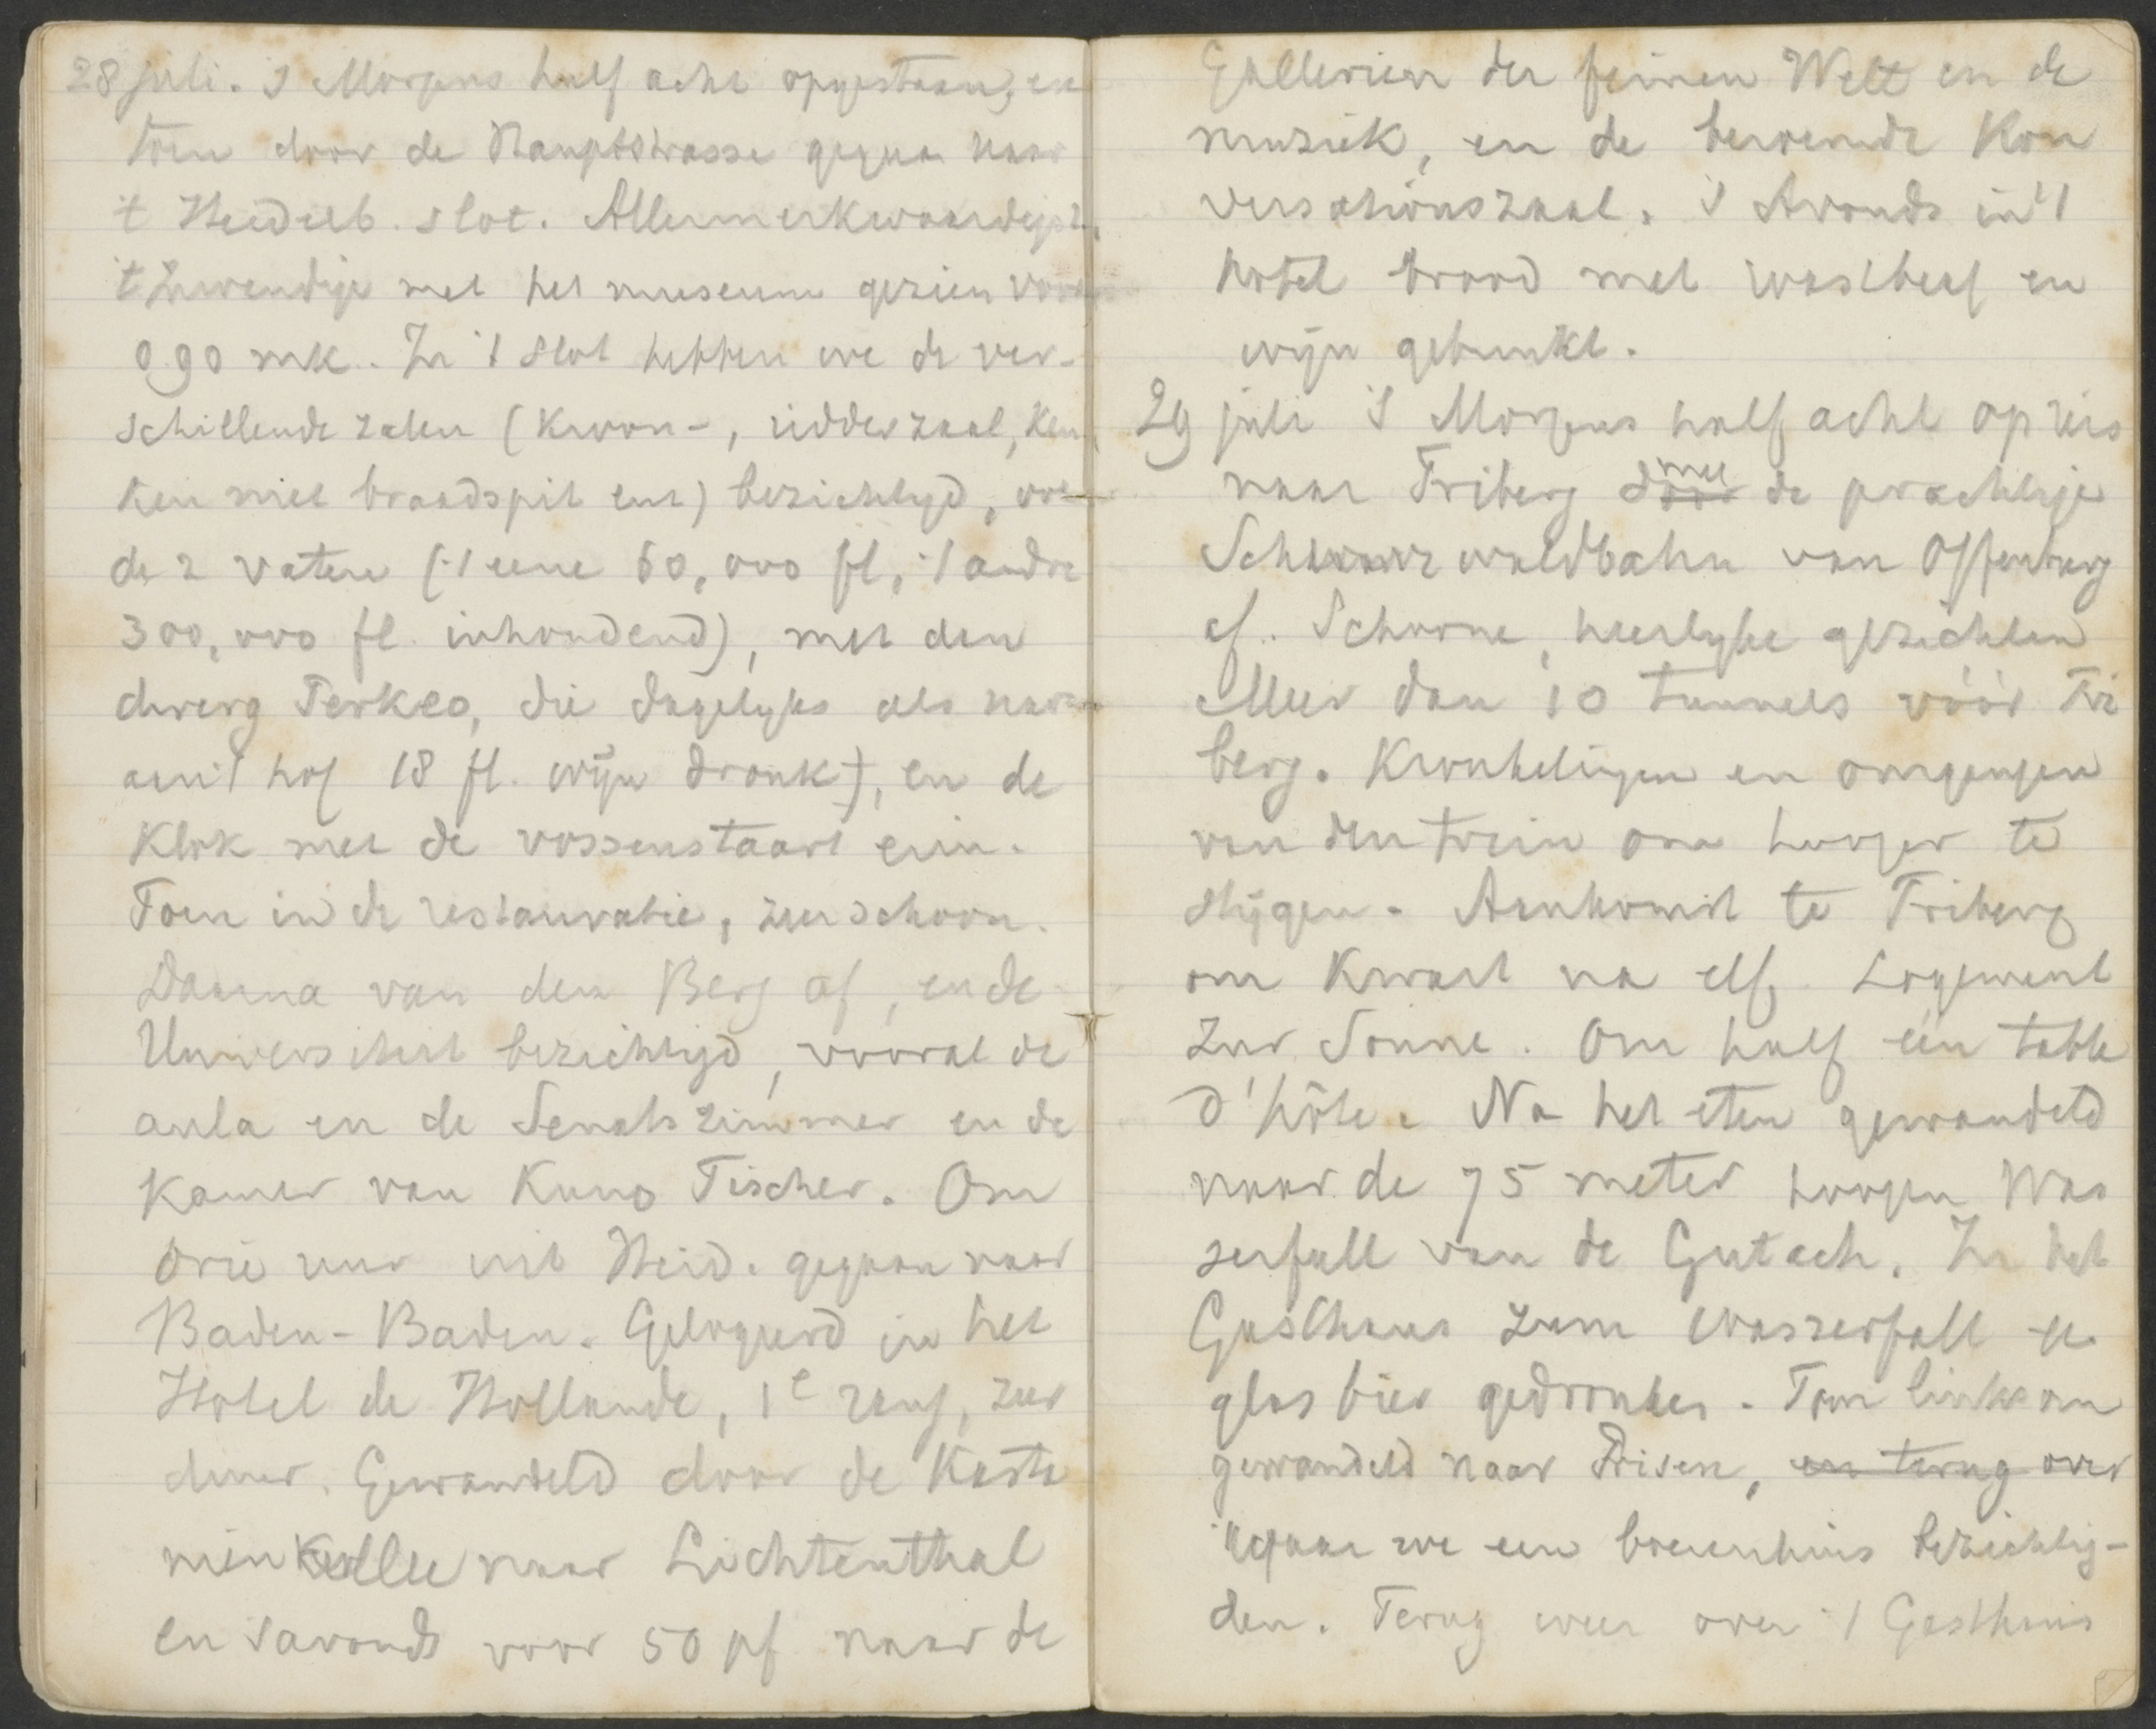 28 juli. 's Morgens half acht opgestaan, en
toen door de Hauptstrasse gegaan naar
't Heidelb. slot. Allermerkwaardigst.
't Inwendige met het museum gezien voor
0.90 mk. In 't slot hebben we de ver-
schillende zalen (Kroon-, ridderzaal, keu
ken met braadspit enz) bezichtigd,
de 2 vaten ('t eene 60,000 fl, 't andre
300,000 fl. inhoudend), met den
dwerg Perkeo, die dagelyks als nar
aan 't hof 18 fl. wijn dronk), en de
klok met de vossenstaart erin.
Toen in de restauratie, zeer schoon.
Daarna van den Berg af, en de
Universiteit bezichtigd, vooral de
aula en de Senatszimmer en de
kamer van Kuno Fischer. Om
drie uur uit Heid. gegaan naar
Baden-Baden. Gelogeerd in het
Hotel de Hollande, 1e rang, zeer
duur. Gewandeld door de Kasta
nien allee naar Lichtenthal
en s'avonds voor 50 pf naar de
Gallerien der feinen Welt en de
muziek, en de beroemde Kon
versationszaal. 's Avonds in 't
hotel brood met rosbeaf en
wijn gebruikt.
29 juli 's Morgens half acht op reis
naar Triberg door met de prachtige
Schwarzwaldbahn van Offenburg
af. Schoone, heerlyke gezichten
Meer dan 10 tunnels vóór Tri
berg. Kronkelingen en omgangen
van den trein om hooger te
stijgen. Aankomst te Triberg
om kwart na elf. Logement
zur Sonne. Om half één table
d'hôte. Na het eten gewandeld
naar de 75 meter hoogen Was
serfall van de Gutach. In het
Gasthaus zum Wasserfall een
glas bier gedronken. Toen links om
gewandeld naar Prisen, en terug over
waar we een boerenhuis bezichtig-
den. Terug weer over 't Gasthaus